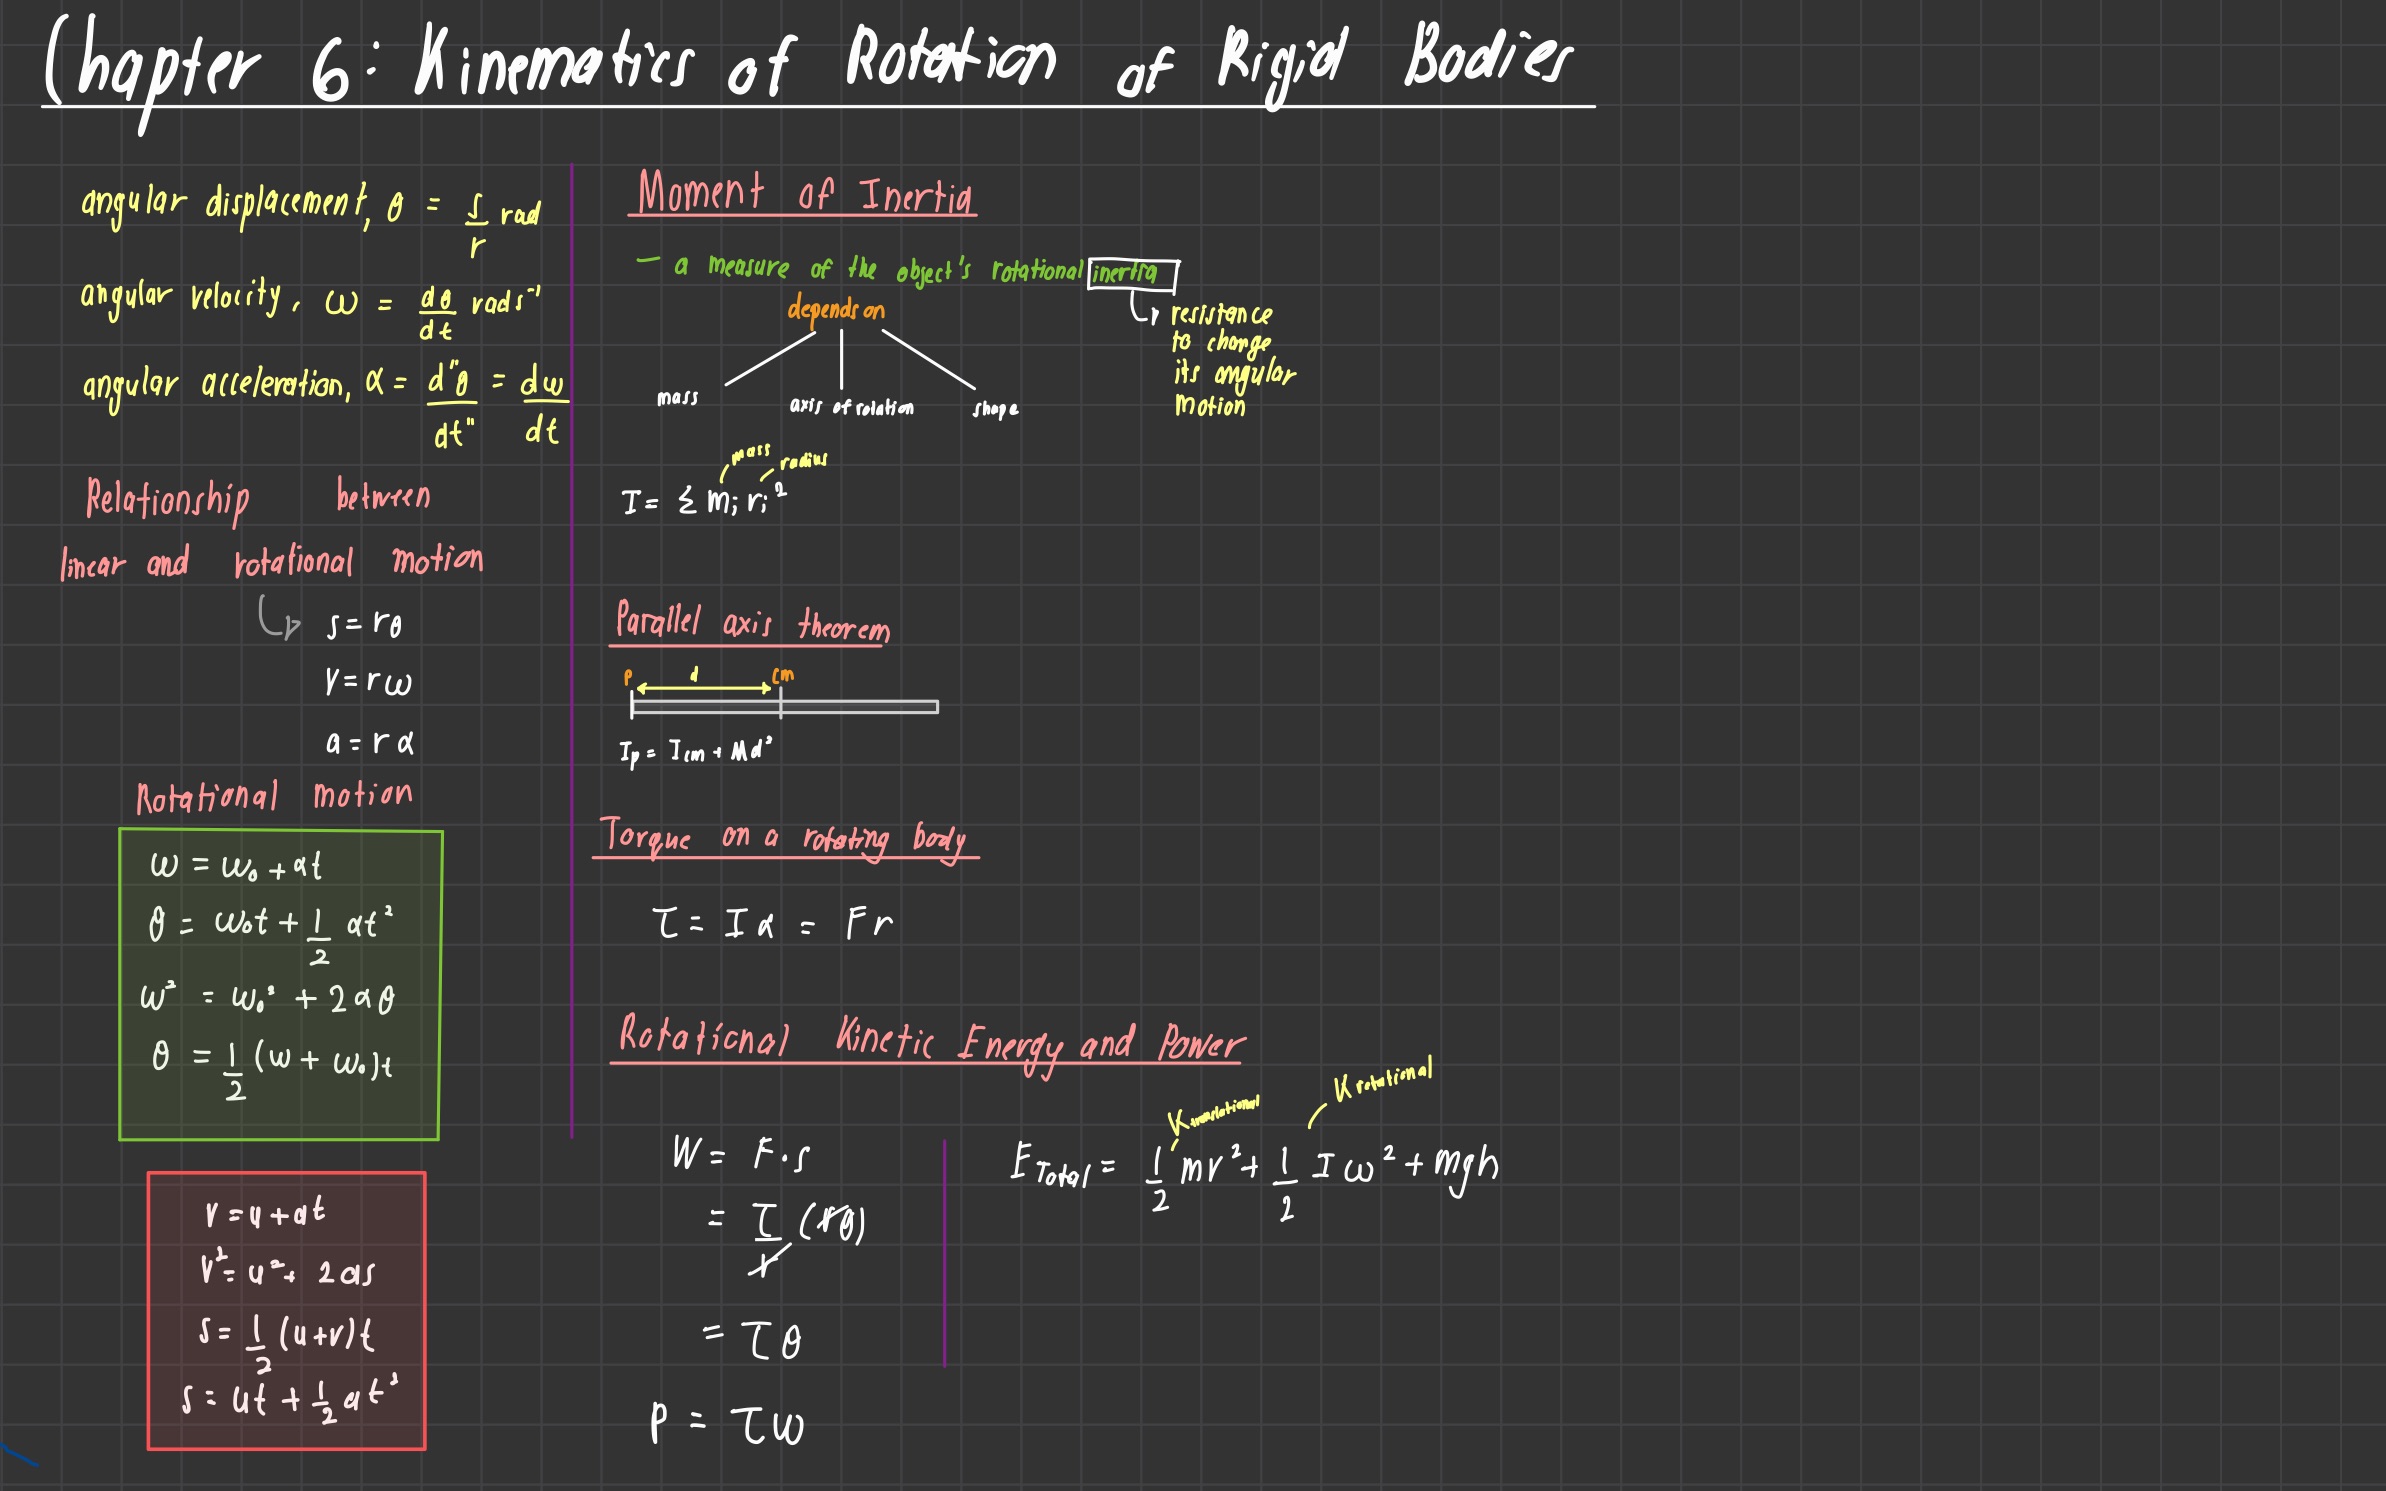 Chapter 6: Kinematics of Rotation of Rigid Bodies
angular displacement, θ = s/r rad
angular velocity, ω = dθ/dt rads⁻¹
angular acceleration, α = d"θ/dt" = dω/dt
Relationship between
linear and rotational motion
s = rθ
v = rω
a = rα
Rotational motion
ω = ω₀ + αt
θ = ω₀t + 1/2 αt²
ω² = ω₀² + 2αθ
θ = 1/2 (ω + ω₀)t
v = u + at
v² = u² + 2as
s = 1/2 (u+v)t
s = ut + 1/2 at²
Moment of Inertia
- a measure of the object's rotational inertia
resistance
to change
its angular
motion
depends on
mass axis of rotation shape
mass radius
I = Σ mᵢ rᵢ²
Parallel axis theorem
P d cm
Ip = Icm + Md²
Torque on a rotating body
τ = Iα = Fr
Rotational Kinetic Energy and Power
W = F·s
= τ/r (rθ)
= τθ
P = τω
Ktranslational Krotational
E Total = 1/2 mv² + 1/2 Iω² + mgh